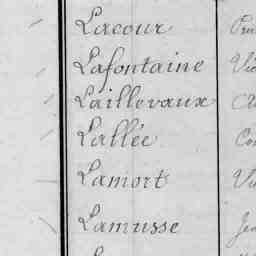 Lacour
Lafontaine
Laillevaux
Lallée
Lamort
Lamusse